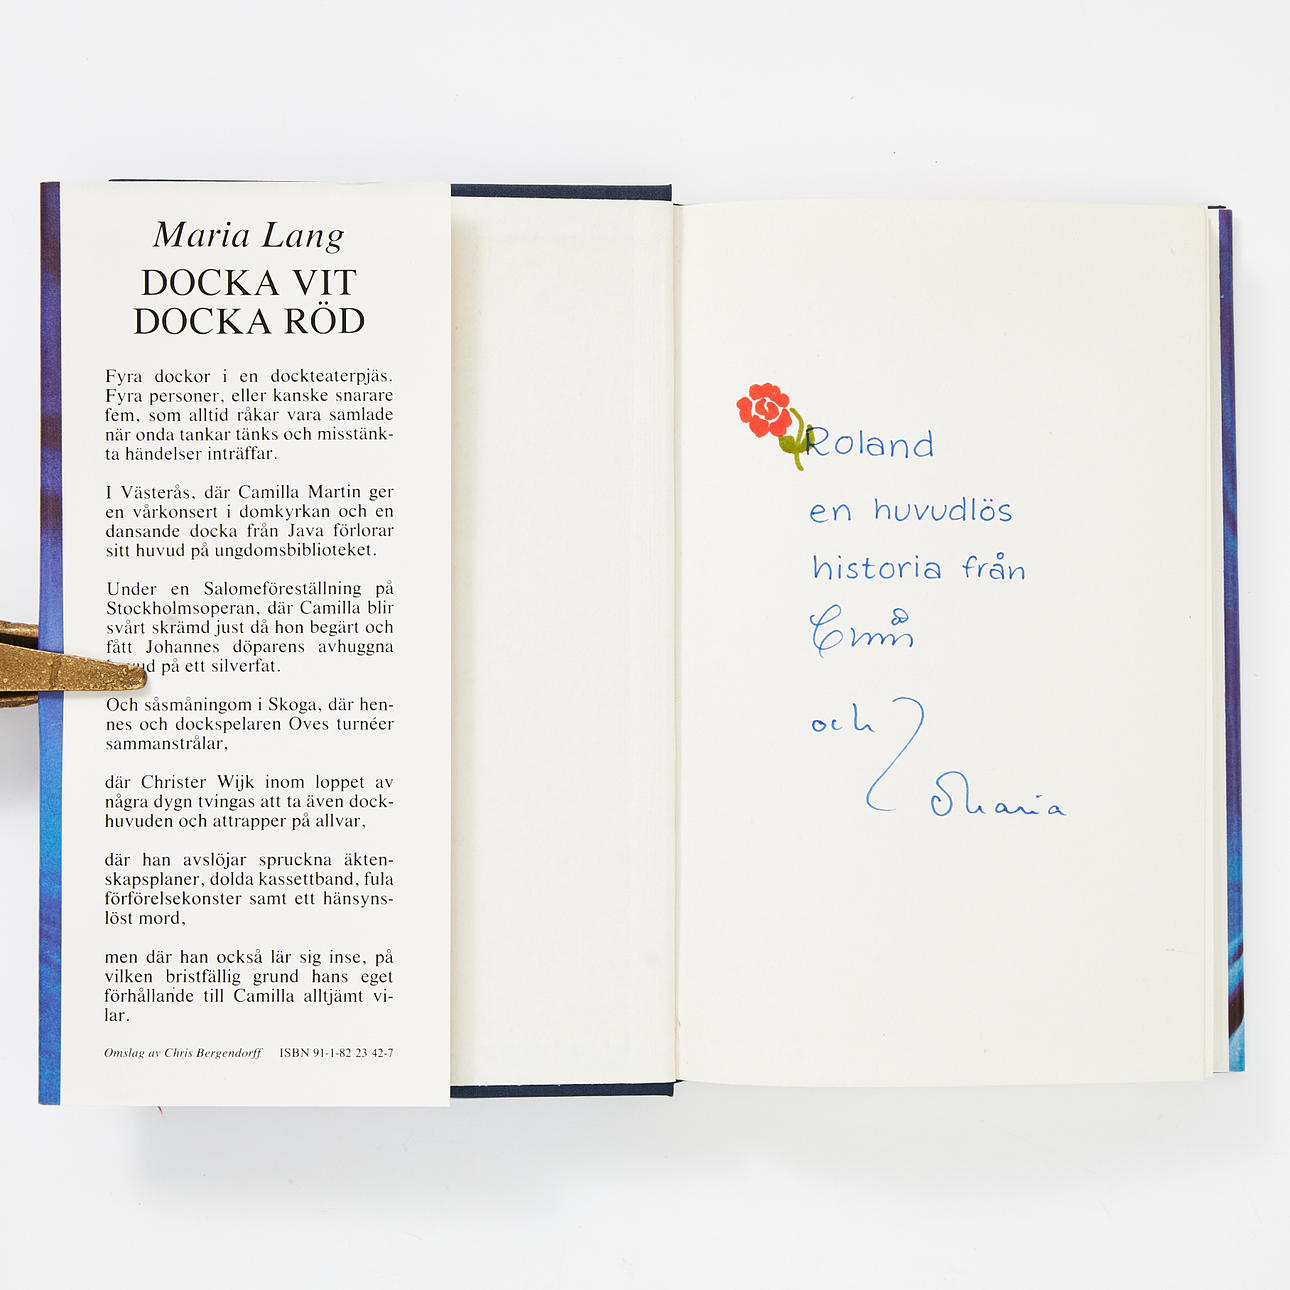 Maria Lang
DOCKA VIT
DOCKA RÖD
Fyra dockor i en dockteaterpjäs.
Fyra personer, eller kanske snarare
fem, som alltid råkar vara samlade
när onda tankar tänks och misstänk-
ta händelser inträffar.
I Västerås, där Camilla Martin ger
en vårkonsert i domkyrkan och en
dansande docka från Java förlorar
sitt huvud på ungdomsbiblioteket.
Under en Salomeföreställning på
Stockholmsoperan, där Camilla blir
svårt skrämd just då hon begärt och
fått Johannes döparens avhuggna
på ett silverfat.
Och såsmåningom i Skoga, där hen-
nes och dockspelaren Oves turnéer
sammanstrålar,
där Christer Wijk inom loppet av
några dygn tvingas att ta även dock-
huvuden och attrapper på allvar,
där han avslöjar spruckna äkten-
skapsplaner, dolda kassettband, fula
förförelsekonster samt ett hänsyns-
löst mord,
men där han också lär sig inse, på
vilken bristfällig grund hans eget
förhållande till Camilla alltjämt vi-
lar.
Omslag av Chris Bergendorff ISBN 91-1-82 23 42-7
Roland
en huvudlös
historia från
och
Maria